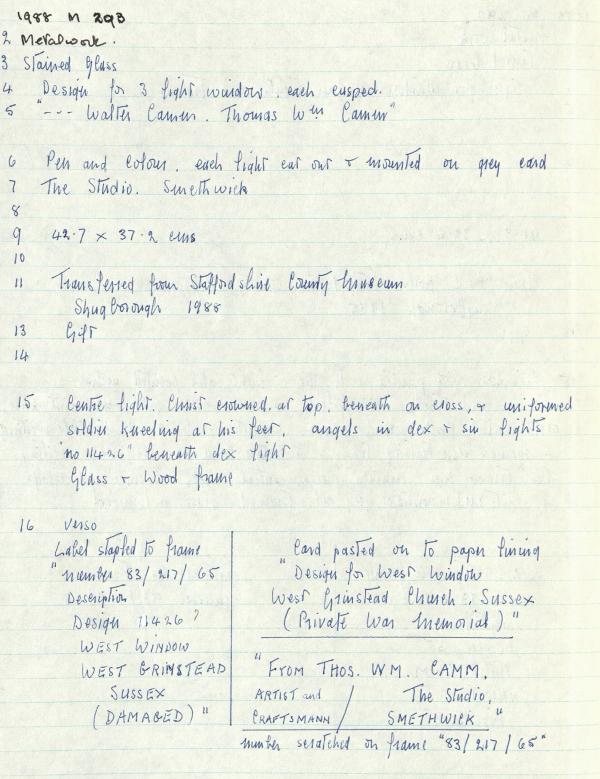 1988 M 293
2 Metalwork.
3 Stained Glass
4 Design for 3 light window. each cusped.
5 "--- Walter Camm. Thomas Wm Camm"
6 Pen and Colour. each light cut out & mounted on grey card
7 The Studio. Smethwick
8
9 42.7 x 37.2 cms
10
11 Transferred from Staffordshire County Museum
Shugborough 1988
13 Gift
14
15 Centre light. Christ crowned, at top. beneath on cross, & uniformed
soldier kneeling at his feet. angels in dex & sin lights
"no 11426" beneath dex light
Glass & Wood frame
16 Verso
Label stapled to frame
"number 83/217/65
Description
Design 11426?
WEST WINDOW
WEST GRINSTEAD
SUSSEX
(DAMAGED)"
Card pasted on to paper lining
"Design for West Window
West Grinstead Church. Sussex
(Private War Memorial)"
"FROM THOS. WM. CAMM.
ARTIST and / The Studio,
CRAFTSMANN / SMETHWICK"
number scratched on frame "83/217/65"